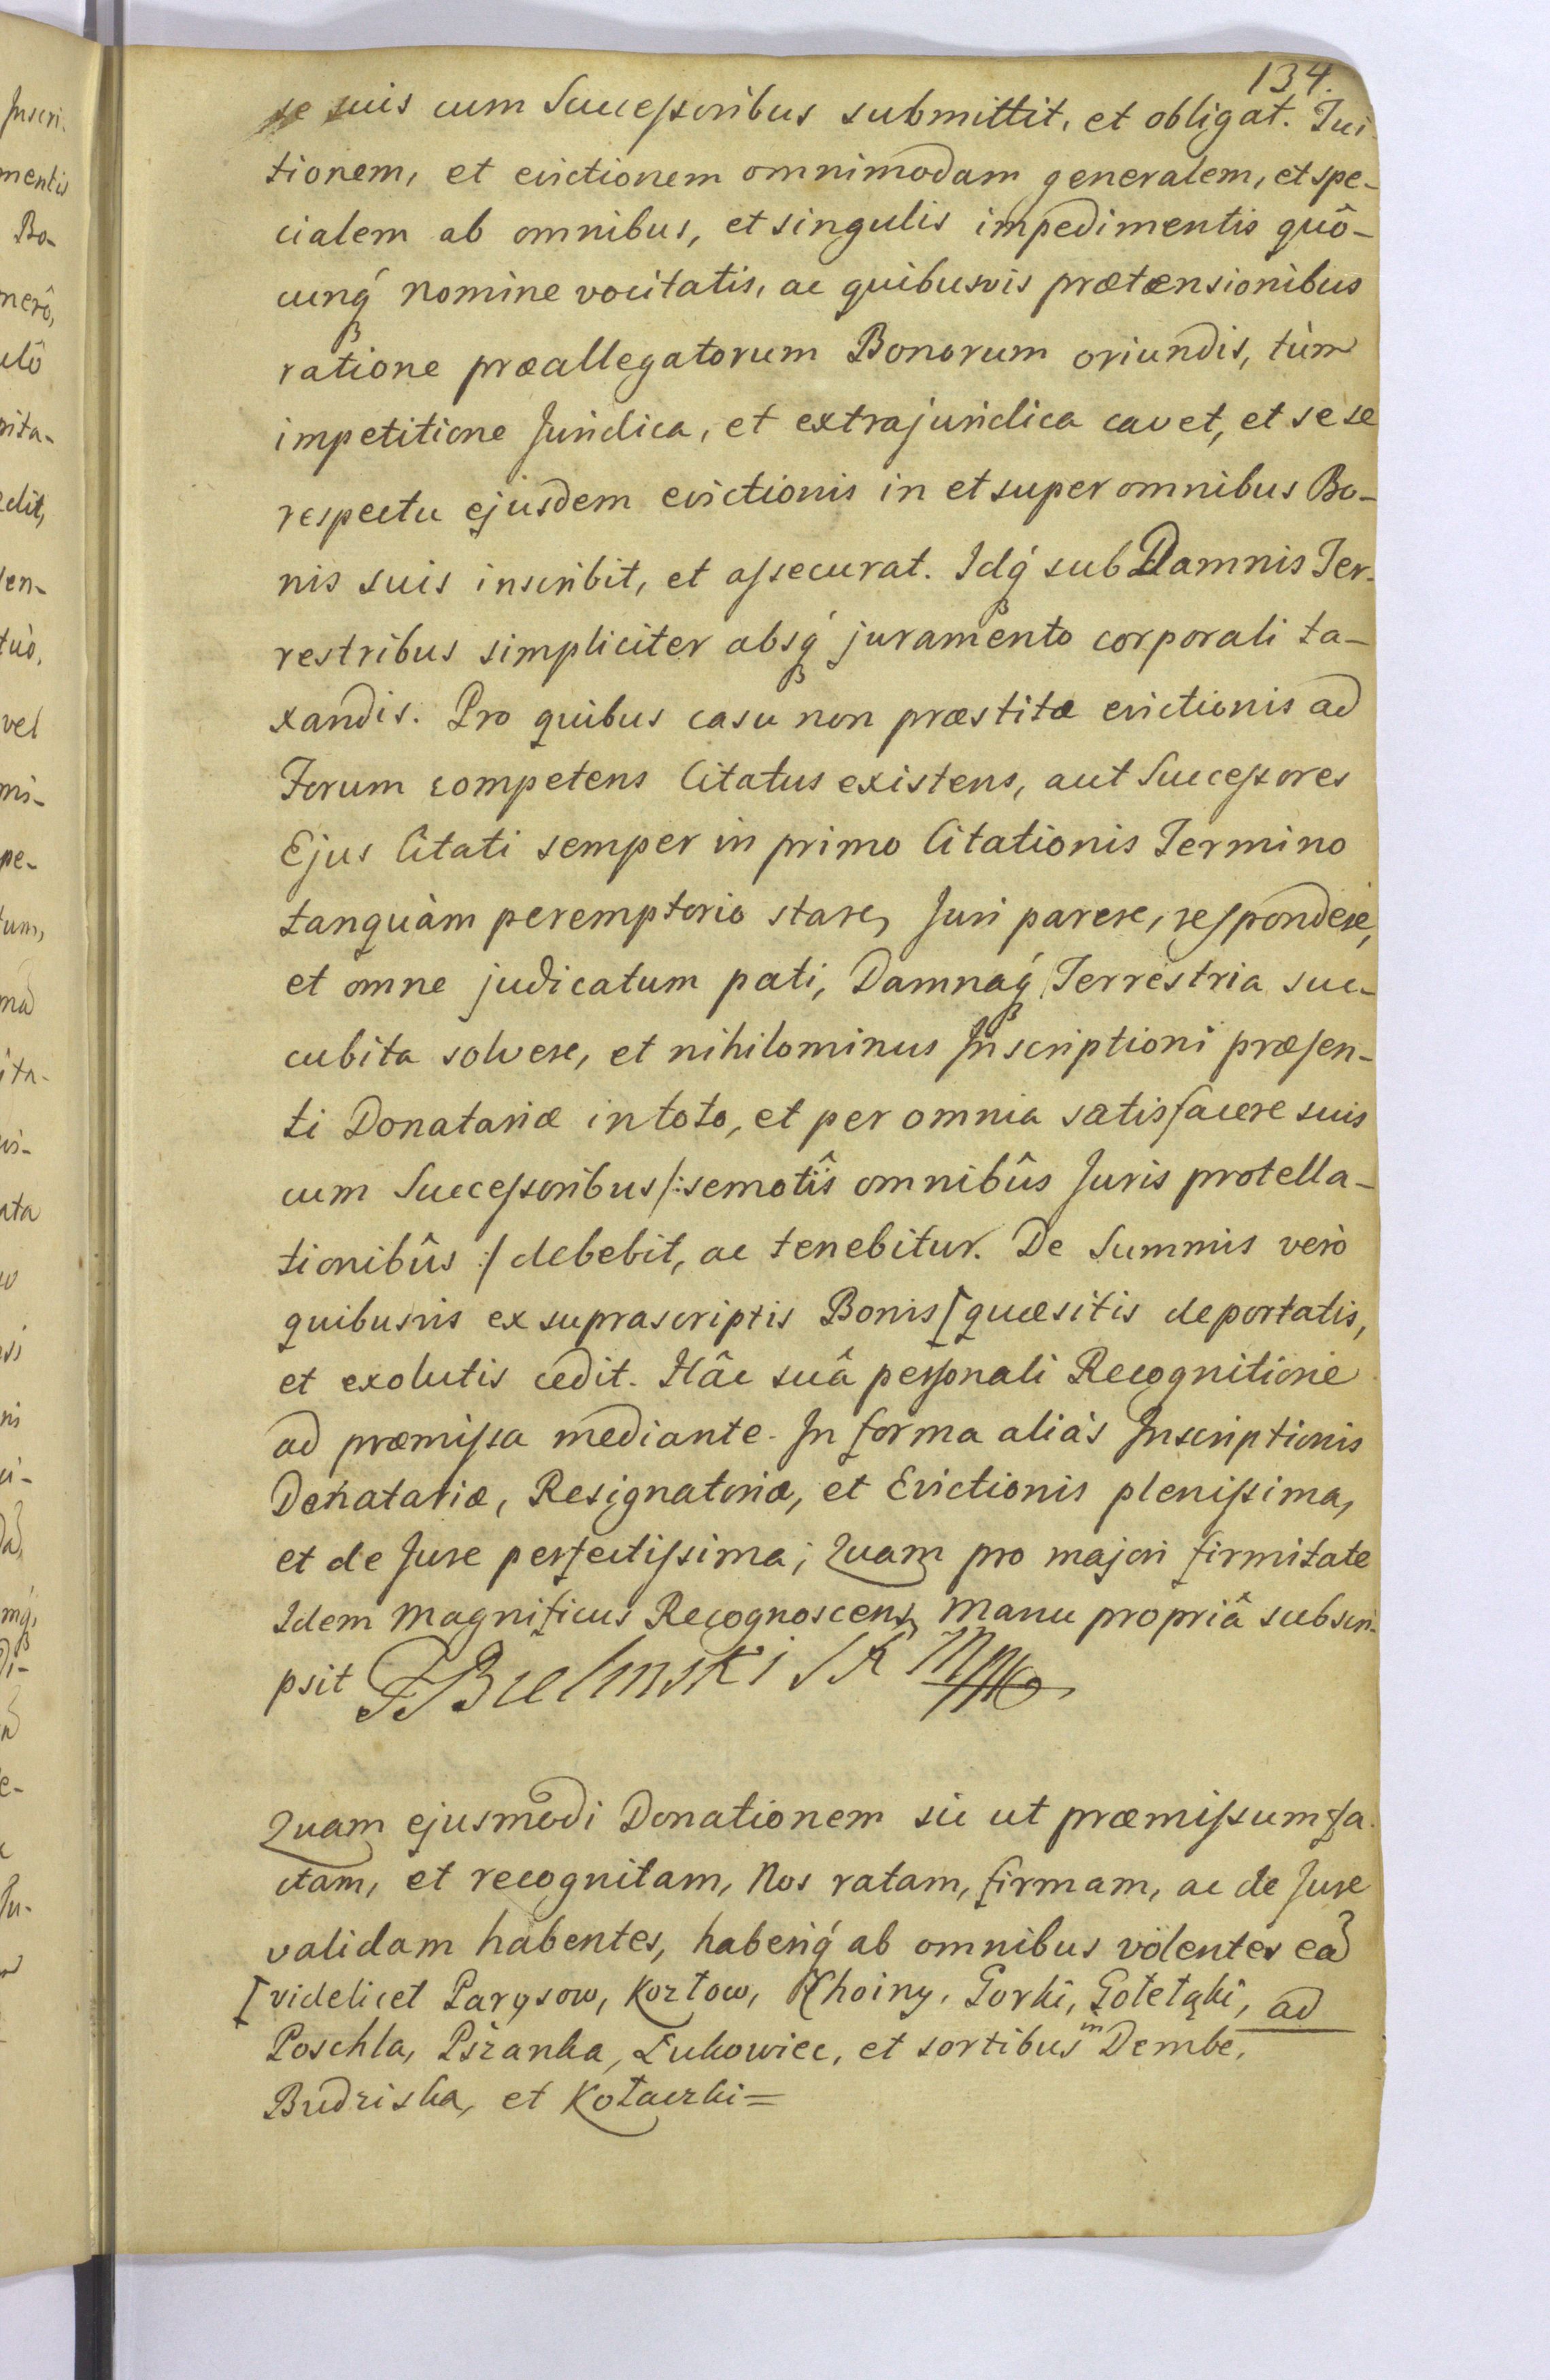 134.
se suis cum Successoribus submittit, et obligat. Tui-
tionem, et evictionem omnimodam generalem, et spe-
cialem ab omnibus, et singulis impedimentis quô-
cunq́ nomine vocitatis, ac quibusvis prætænsionibus
ratione præallegatorum Bonorum oriundis, tùm
impetitione Juridica, et extrajuridica cavet, et se se
respectu ejusdem evictionis in et super omnibus Bo-
nis suis inscribit, et assecurat. Idq́ sub Damnis Ter-
restribus simpliciter absq́ juramento corporali ta-
xandis. Pro quibus casu non præstitæ evictionis ad
Forum competens Citatus existens, aut Successores
Ejus Citati semper in primo Citationis Termino
tanquàm peremptorio stare, Juri parere, respondere,
et omne judicatum pati, Damnaq́ Terrestria suc-
cubita solvere, et nihilominus Inscriptioni præsen-
ti Donatariæ in toto, et per omnia satisfacere suis
cum Successoribus /: semotîs omnibûs Juris protella-
tionibûs :/ debebit, ac tenebitur. De Summis verò
quibusvis ex suprascriptis Bonis [quæsitis deportatis,
et exolutis cedit. Hâc suâ personali Recognitione
ad præmissa mediante. In forma aliàs Inscriptionis
Donatariæ, Resignatoriæ, et Evictionis plenissima,
et de Jure perfectissima; Quam pro majori firmitate
Idem Magnificus Recognoscens, Manu propriâ subscri-
psit F Bielinski S K Mppa
Quam ejusmodi Donationem sic ut præmissum fa-
ctam, et recognitam, Nos ratam, firmam, ac de Jure
validam habentes, haberiq́ ab omnibus volentes ea
[videlicet Parysow, Kozłow, Choiny, Gorki, Gołetąki, ad
Poschla, Pszanka, Łukowiec, et sortibus in Dembe,
Budziska, et Kołaczki =
Inscri-
mentis
Bo-
nerô,
ulô
nita-
edit,
vel
mi-
pe-
tum,
ita-
ata